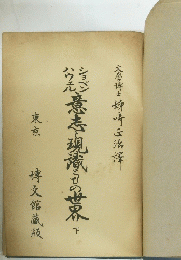 文學博士 姉崎正治譯
ショペン
ハウエル
意志と現識としての世界
下
東京
博文館藏版